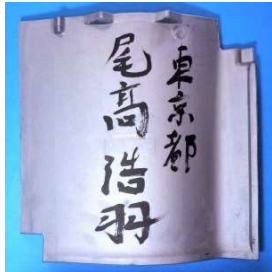 東京都
尾高浩羽